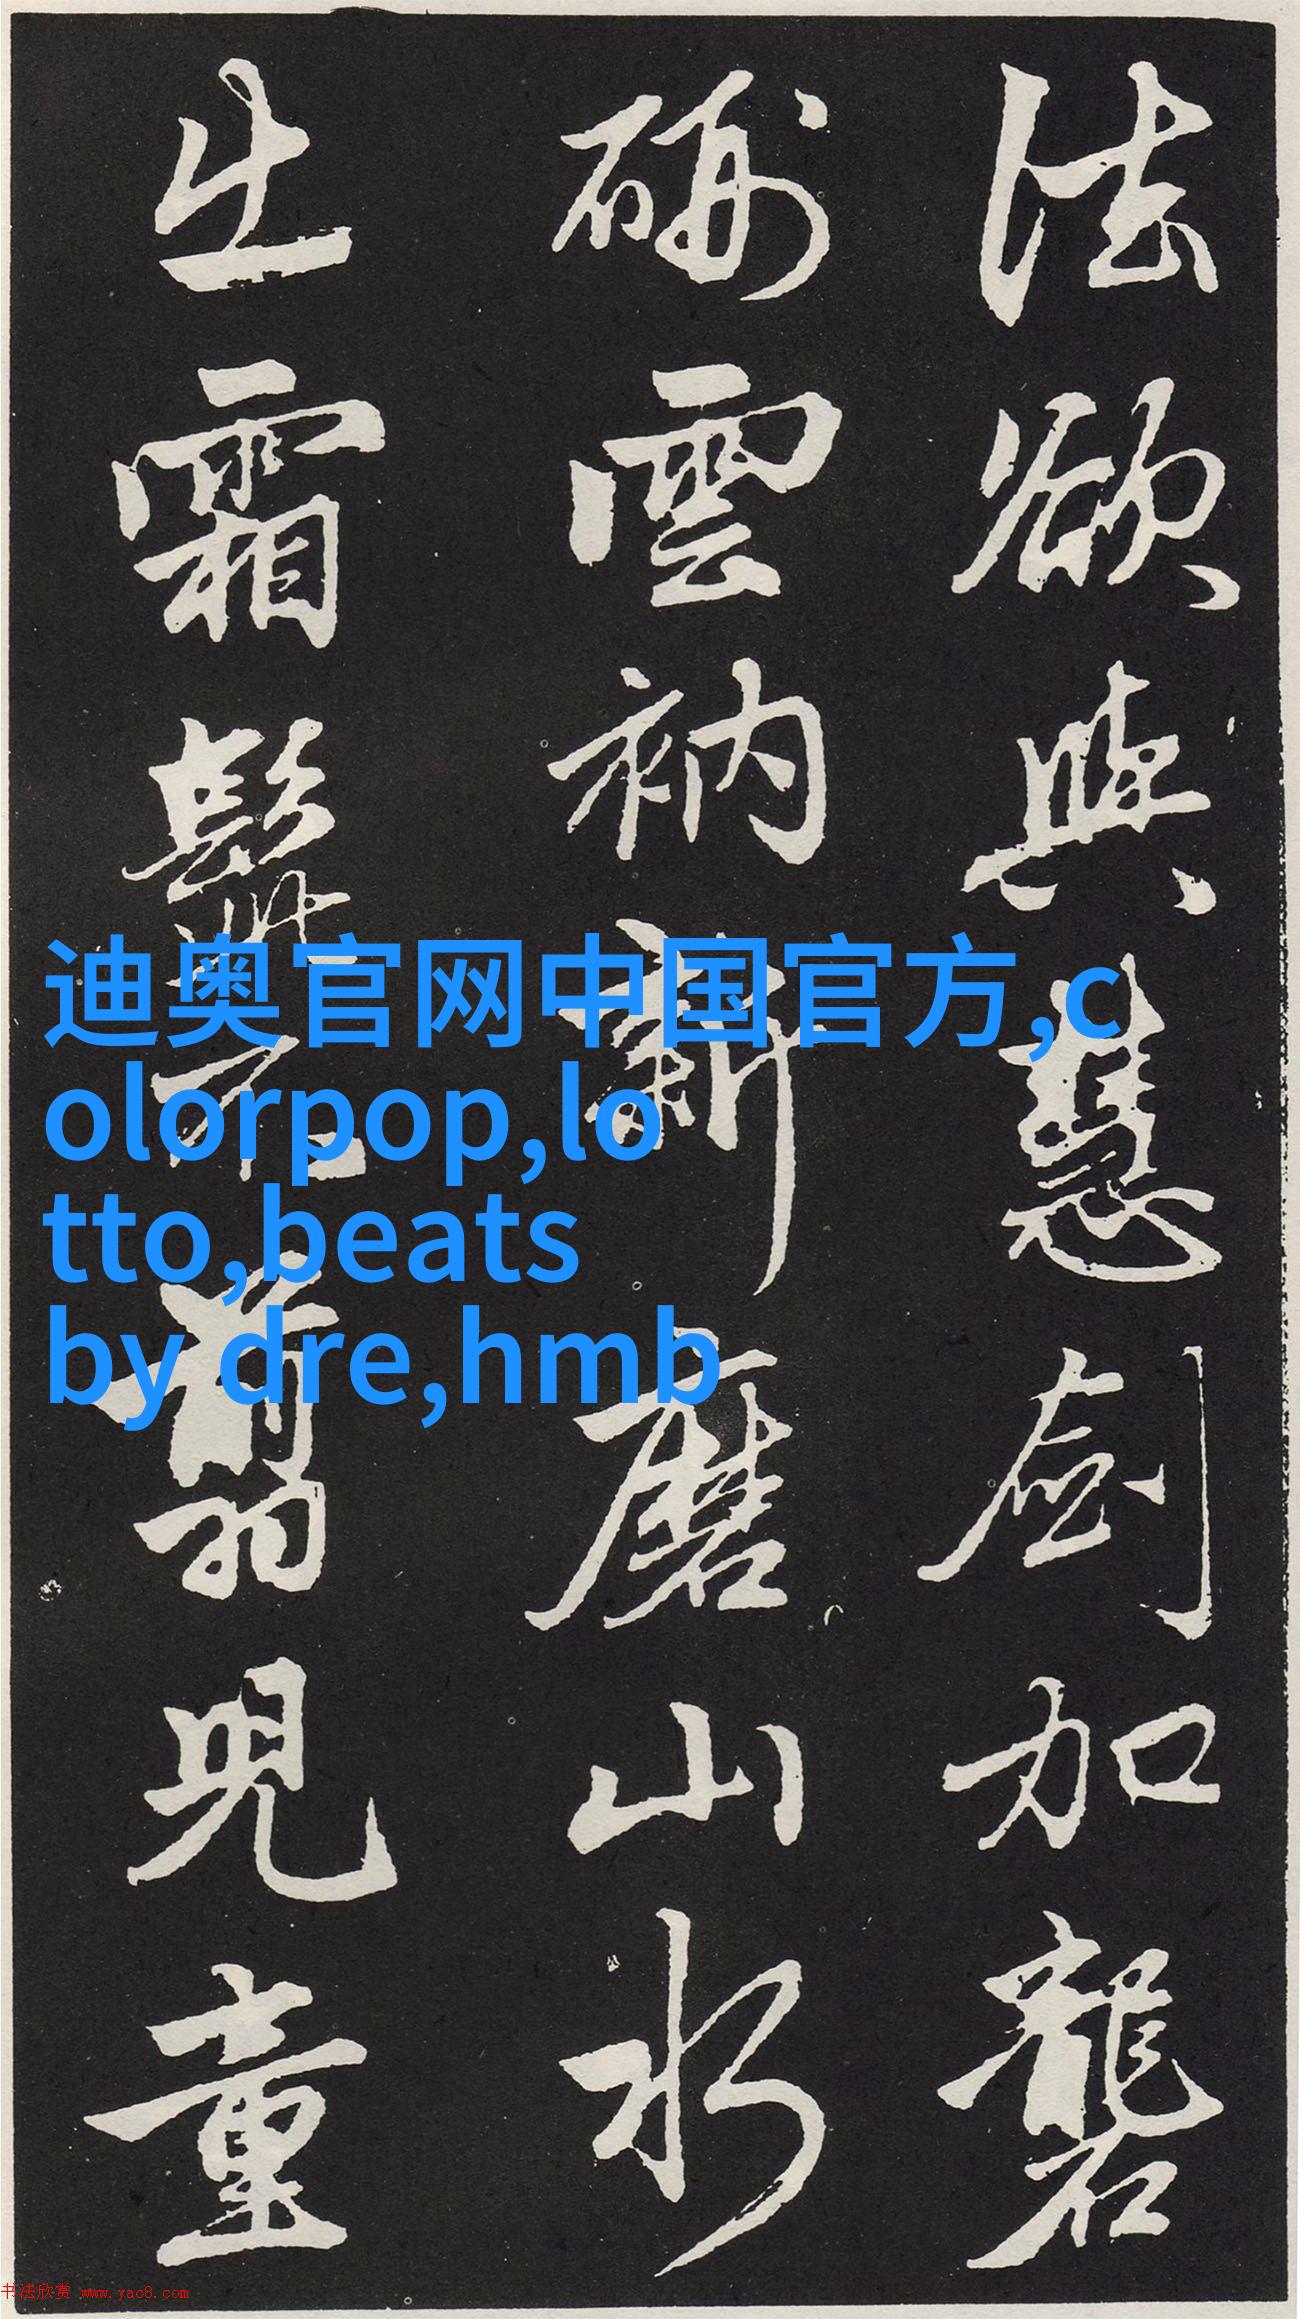 法欲與慧劍加礱
硎雲衲新磨山水
出霜髭不翦兒童
迪奥官网中国官方,c
olorpop,lo
tto,beats
by dre,hmb
书法欣赏 www.yac8.com